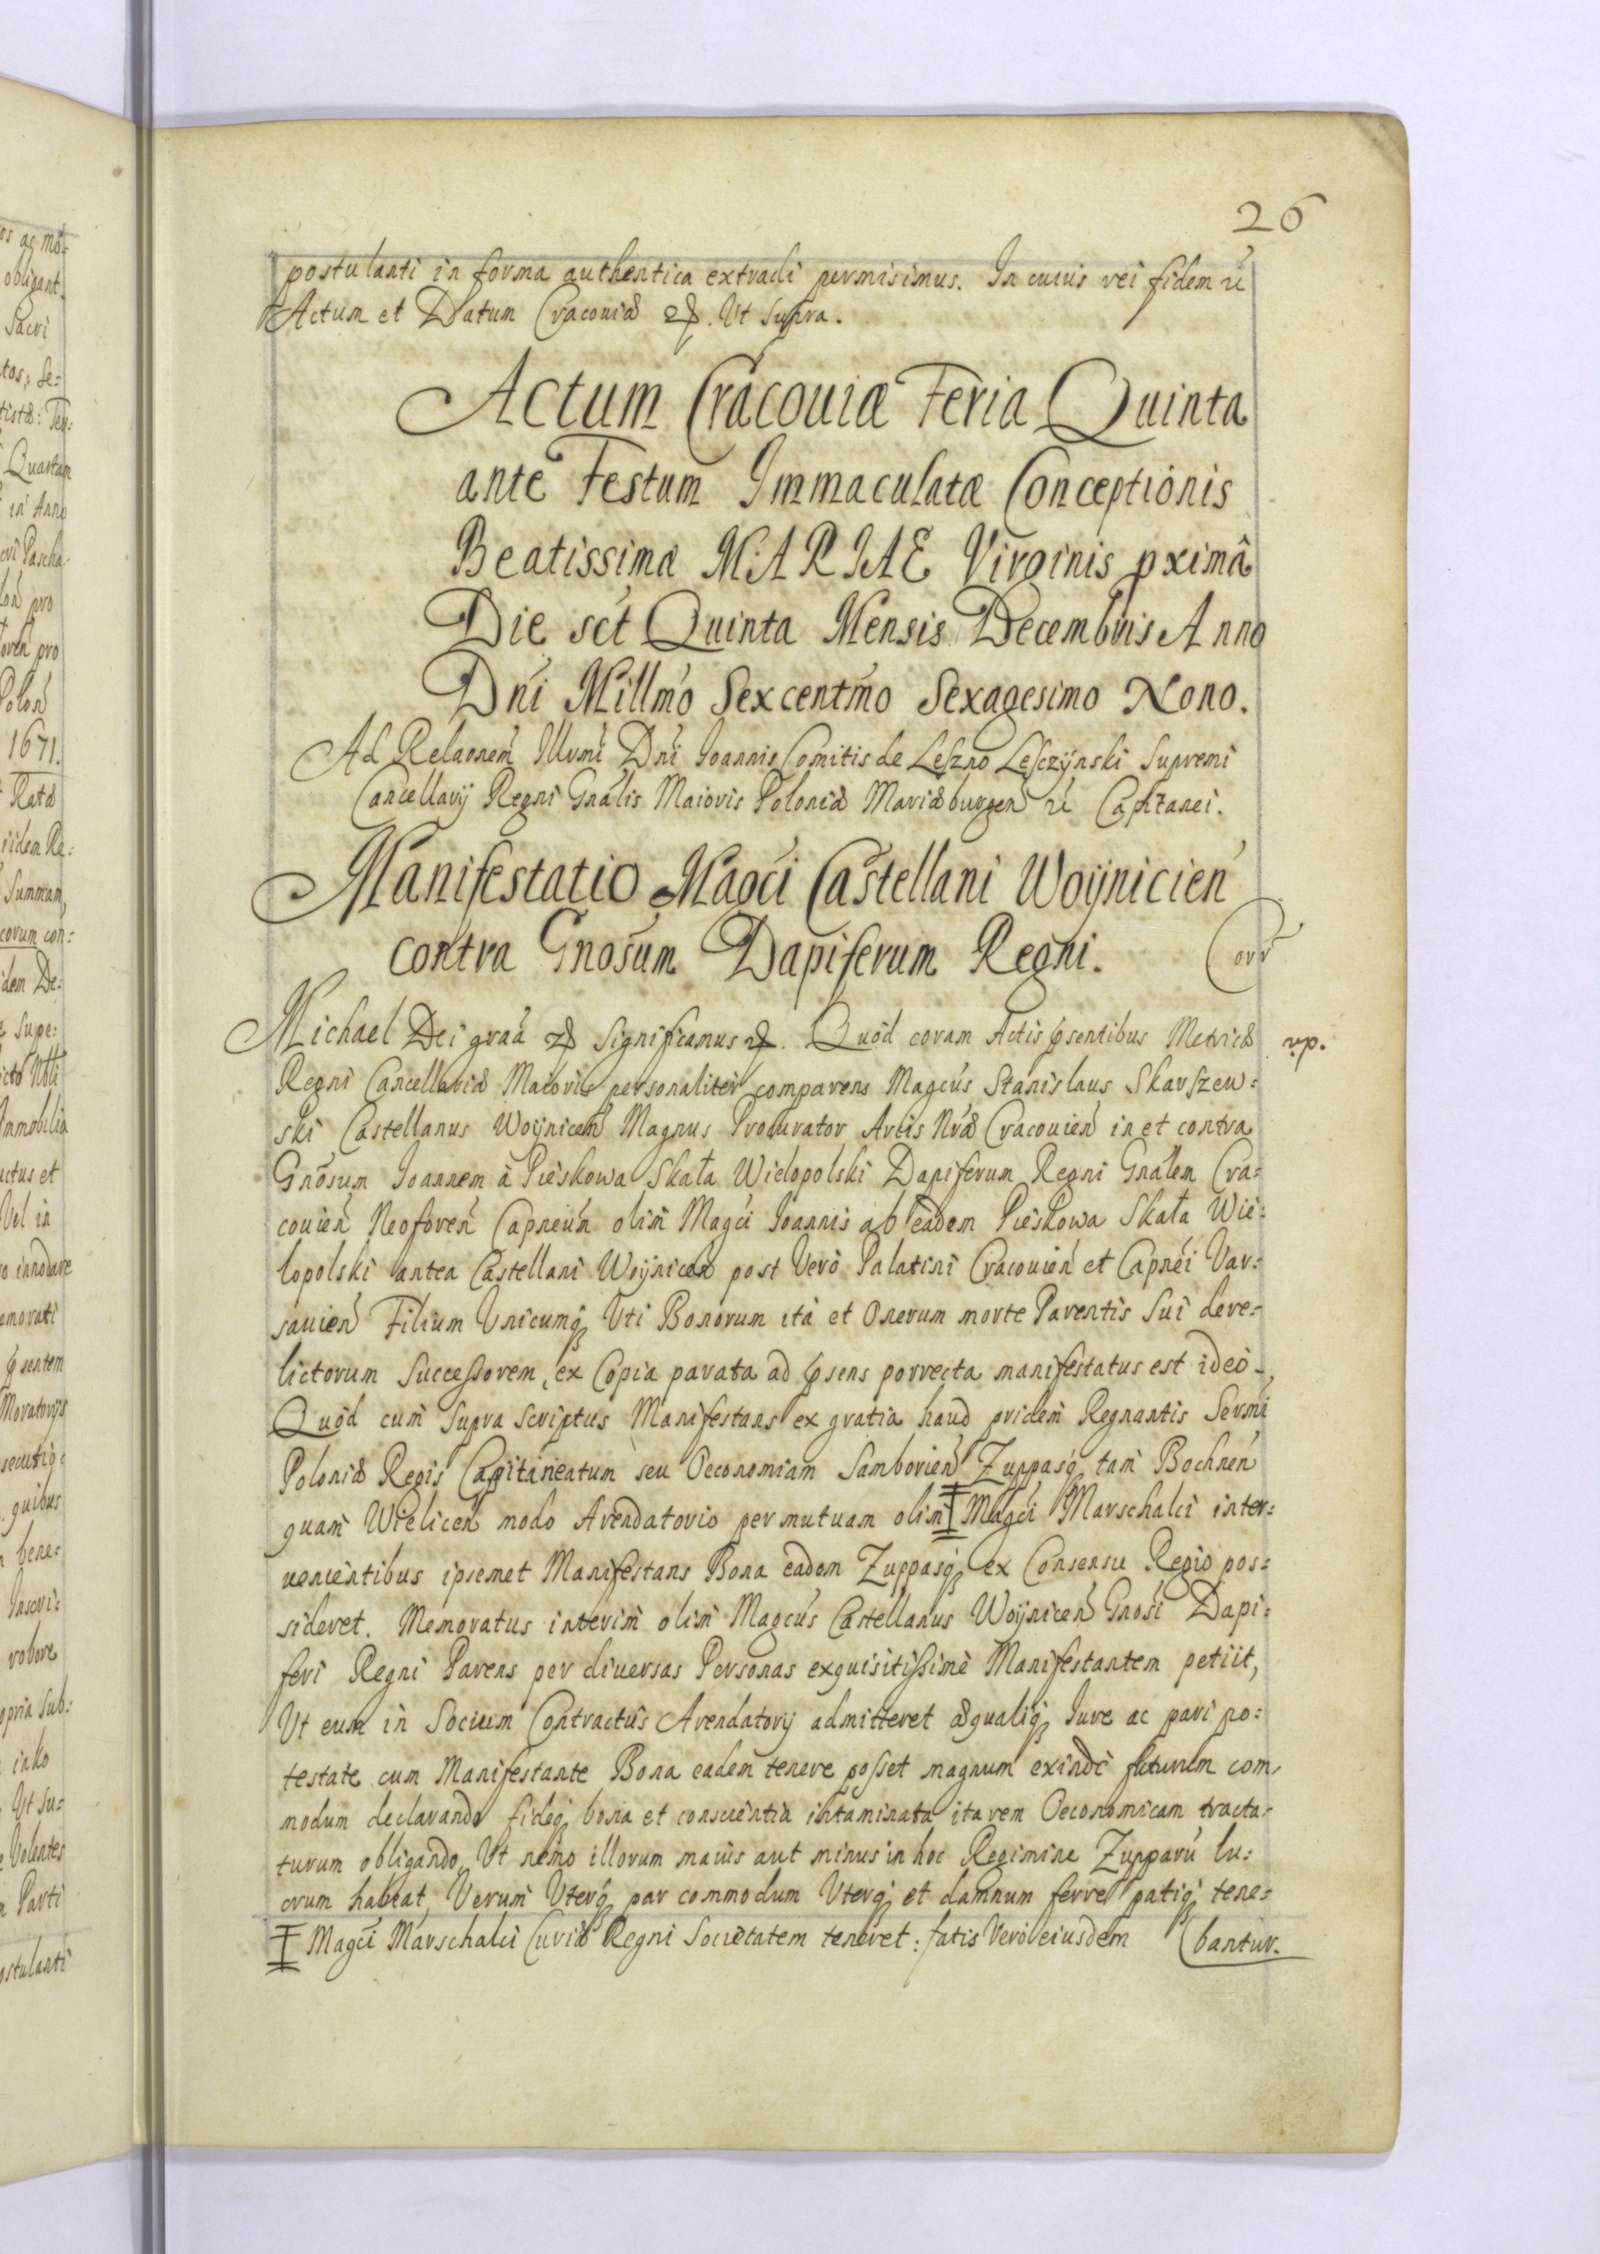 26
postulanti in forma authentica extradi permisimus. In cuius rei fidem
Actum et Datum Cracouiæ &. Vt Supra.
Actum Cracouiæ Feria Quinta
ante Festum Immaculatæ Conceptionis
Beatissimæ MARIAE Virginis pximâ
Die sct Quinta Mensis Decembris Anno
Dni Millmo Sexcentmo Sexagesimo Nono.
Ad Relaonem Illumi Dni Ioannis Comitis de Leszno Lesczÿnski Supremi
Cancellarij Regni Gnalis Maioris Poloniæ Mariæburgen Capitanei.
Manifestatio Magci Castellani Woÿnicien
contra Gnosum Dapiferum Regni.
Corr
Michael Dei graa & Significamus &. Quòd coram Actis psentibus Metricæ
rp.
Regni Cancellariæ Maioris personaliter comparens Magcus Stanislaus Skarszew=
ski Castellanus Woÿnicen Magnus Procurator Arcis Nræ Cracouien in et contra
Gnosum Ioannem à Pieskowa Skała Wielopolski Dapiferum Regni Gnalem Cra=
couien Neoforen Capneun olim Magci Ioannis ab eadem Pieskowa Skała Wie=
lopolski antea Castellani Woÿnicen post Verò Palatini Cracouien et Capnei Var=
sauien Filium Vnicumq Vti Bonorum ità et Onerum morte Parentis Sui dere=
lictorum Successorem, ex Copia parata ad psens porrecta manifestatus est ideò,
Quòd cum Supra Scriptus Manifestans ex gratia haud pridem Regnantis Sermi
Poloniæ Regis Capitaneatum seu Oeconomiam Samborien Zuppasq tam Bochnen
quam Wielicen modo Arendatorio per mutuam olim ‡ Magci Marschalci inter=
uenientibus ipsemet Manifestans Bona eadem Zuppasq ex Consensu Regio pos=
sideret. Memoratus interim olim Magcus Castellanus Woÿnicen Gnosi Dapi=
feri Regni Parens per diuersas Personas exquisitissimè Manifestantem petiit,
Vt eum in Socium Contractus Arendatorij admitteret æqualiq Iure ac pari po=
testate cum Manifestante Bona eadem tenere posset magnum exindè futurum com=
modum declarando fideq bona et conscientia intaminata ita rem Oeconomicam tracta=
turum obligando, Vt nemo illorum maius aut minus in hoc Regimine Zupparu lu=
crum habeat, Verum Vterq par commodum Vterq et damnum ferre patiq tene=
‡ Magci Marschalci Curiæ Regni Societatem teneret: fatis Verò eiusdem
bantur.